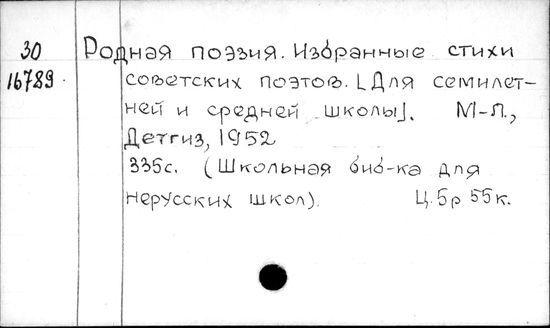 30 Родная поэзия. Избранные стихи
16789. советских поэтов. [Для семилет-
ней и средней школы]. М-Л.,
Детгиз, 1952
335с. (Школьная биб-ка для
нерусских школ). Ц. 5р 55к.